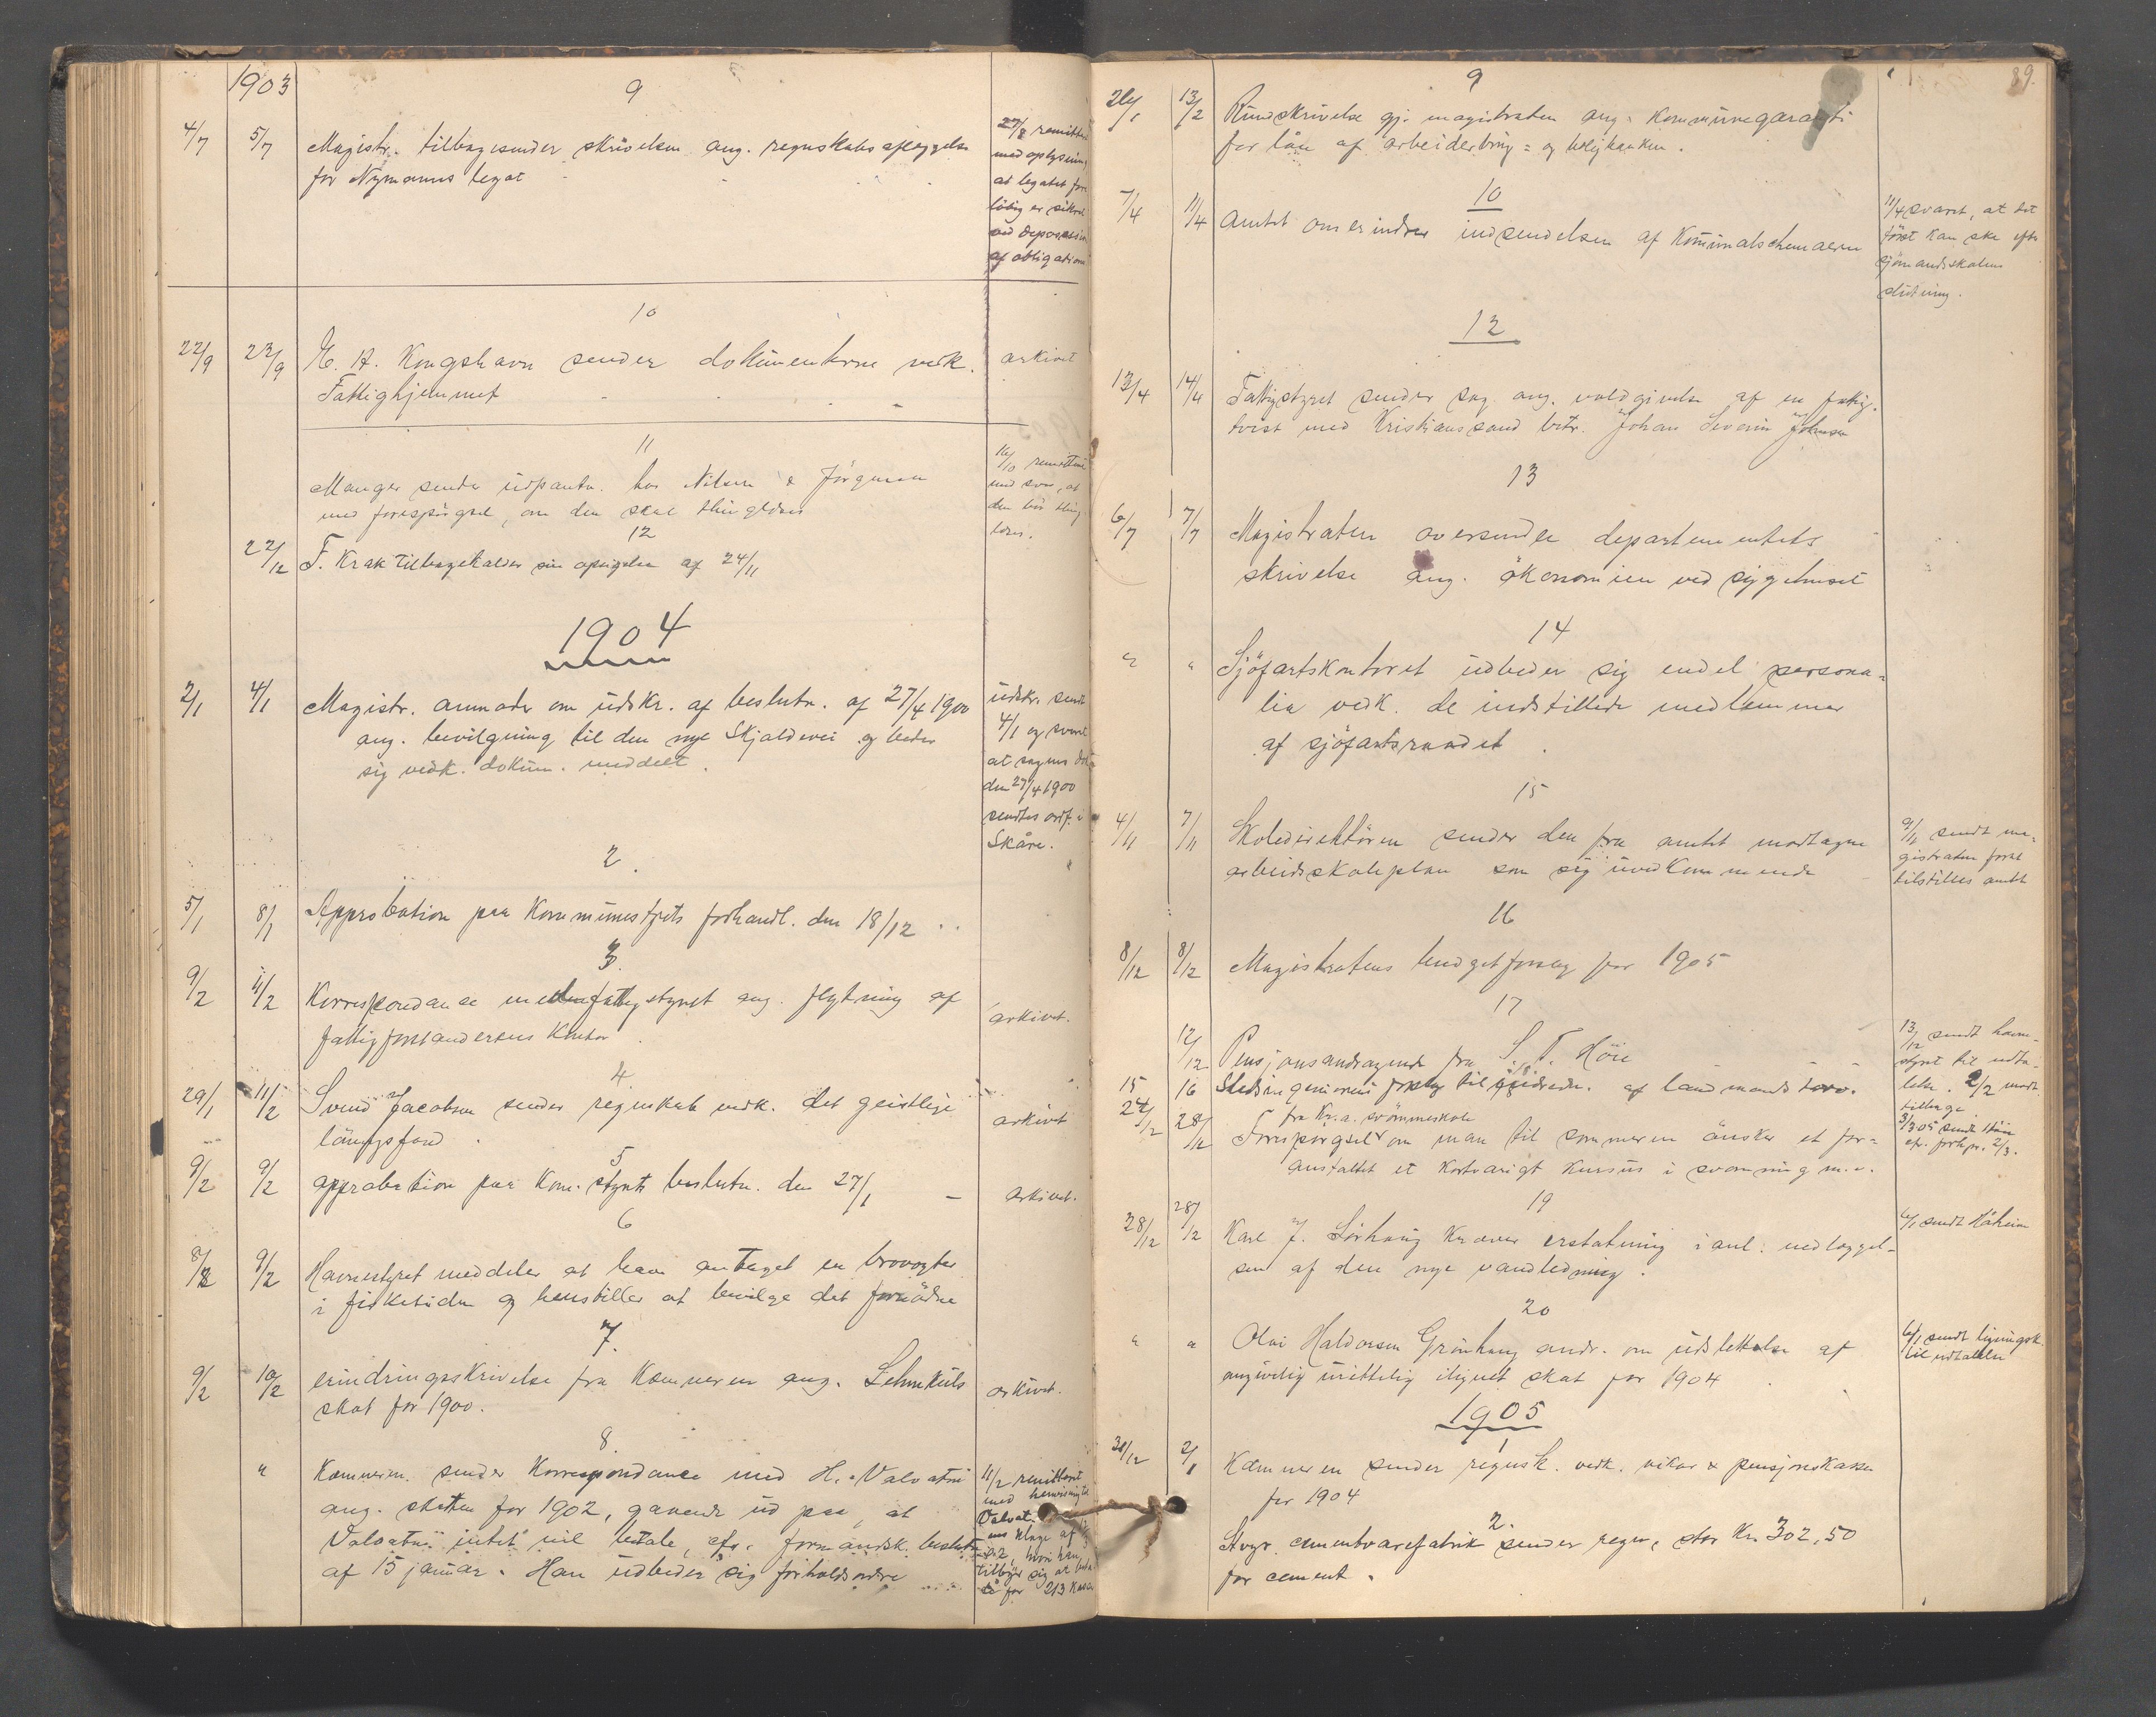 1903
9
4/7 5/7 Magistr. tilbagesender skrivelsen ang. regnskabsaflæggelse
for Nymanns legat
27/8 remitteret
med oplysning
at legatet fore
löbig er sikret
ved deponering
af obligationer
10
22/9 23/9 H. A. Kongshavn sender dokumenterne vedk.
Fattighjemmet
arkivet
11
Manger sender udpantn. hos Nilsen & Jörgensen
med forespörgsel, om den skal thinglæses
16/10 remitteret
med svar, at
den bör thing
læses.
12
22/12 F. Krak tilbagekalder sin opsigelse af 24/11
1904
2/1 4/1 Magistr. anmoder om udskr. af beslutn. af 27/4 1900
ang. bevilgning til den nye Skjoldevei og beder
sig vedk. dokum. meddelt.
udskr. sendt
4/1 og svaret
at sagens dok.
den 27/4 1900
sendtes ordf. i
Skåre.
2.
5/1 8/1 Approbation paa Kommunestyrets forhandl. den 18/12
3.
9/2 11/2 Korrespondanse med fattigstyret ang. flytning af
fattigforstanderens Kontor.
arkivet.
4.
29/1 11/2 Svend Jacobsen sender regnskab vedk. det geistlige
lönningsfond.
arkivet
5
9/2 9/2 approbation paa Kom. styrets beslutn. den 27/1 –
arkivet.
6
8/2 9/2 Havnestyret meddeler at have antaget en brovogter
i fisketiden og henstiller at bevilge det fornödne
7.
9/2 10/2 erindringsskrivelse fra Kæmneren ang. Lehmkuls
skat for 1900.
arkivet.
8
" Kæmneren. sender Korrespondance med H. Valvatni
ang. skatten for 1902, gaaende ud paa, at
Valvatni intet vil betale, cfr. formandsk. beslutn.
af 15 januar. Han udbeder sig forholdsordre
11/2 remitteret
med henvisning til
Valvat-
nis klage af
hvori han
tilbyder sig at beta-
le for 213 Kasser
89.
9
26/1 13/2 Rundskrivelse gj. magistraten ang. Kommunegaranti
for lån af arbeiderbrug= og boligbanken.
10
7/4 11/4 Amtet om erindrer indsendelsen af Kommunalschemaerne
11/4 svaret, at det
först kan ske efter
sjömandsskatens
slutning.
12
13/4 14/4 Fattigstyret sender sag ang. voldgivelse af en fattig-
tvist med Kristianssand betr. Johan Severin Johnsen
13
6/7 7/7 Magistraten oversender departementets
skrivelse ang. ökonomien ved sygehuset
14
" " Sjöfartskontoret udbeder sig endel persona=
lia vedk. de indstillede medlemmer
af sjöfartsraadet.
15
4/11 7/11 Skoledirektören sender den fra amtet modtagne
arbeidsskoleplan som sig uvedkommende
9/11 sendt ma-
gistraten forat
tilstilles amtet
16
8/12 8/12 Magistratens budgetforslag for 1905
17
12/12 Pensjonsandragende fra S. T. Höie
13/12 sendt havne-
styret til udta-
lelse. 2/2 modt.
tilbage
15 16 Stadsingeniörens forslag til udbedr. af landmandstorv.
24/12 28/12 Forespörgsel fra Kr.a. svömmeskole om man til sommeren önsker et for=
anstaltet et kortvarigt Kursus i svömning m.v.
19
28/12 28/12 Karl J. Sörhaug Kræver erstatning i anl. nedlæggel-
sen af den nye vandledning.
6/1 sendt Håheim
20
" " Olai Haldorsen Grönhaug andr. om udslettelse af
angivelig urettelig ilignet skat for 1904
6/1 sendt ligningsk.
til udtalelse
1905
1
30/12 2/1 Kæmneren sender regnsk. vedk. vikar & pensjonskassen
for 1904
2.
Stvgr. cementvarefabrik sender regn., stor Kr. 302,50
for cement.